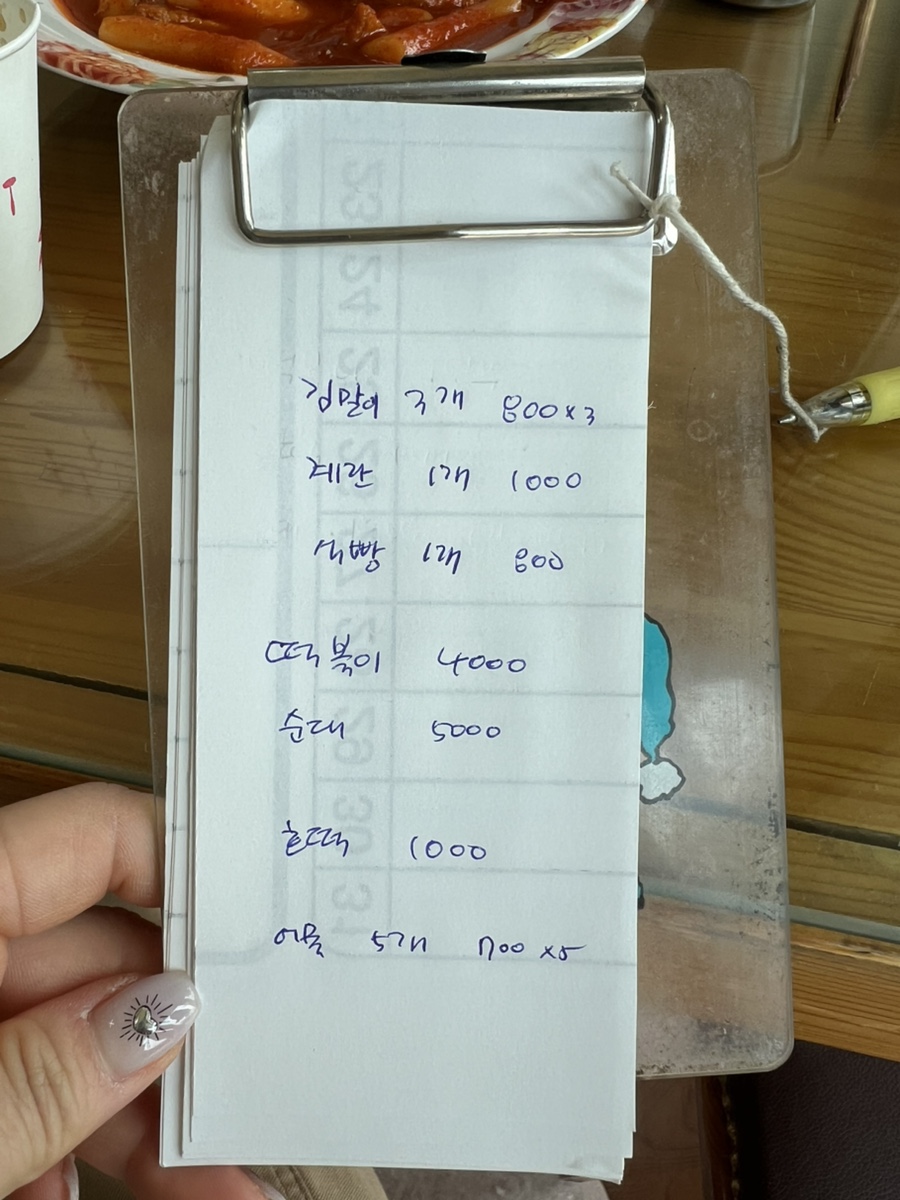 김말이 3개 800x3
계란 1개 1000
식빵 1개 800
떡볶이 4000
순대 5000
호떡 1000
어묵 5개 700 x5
23
24
29
30
31
T